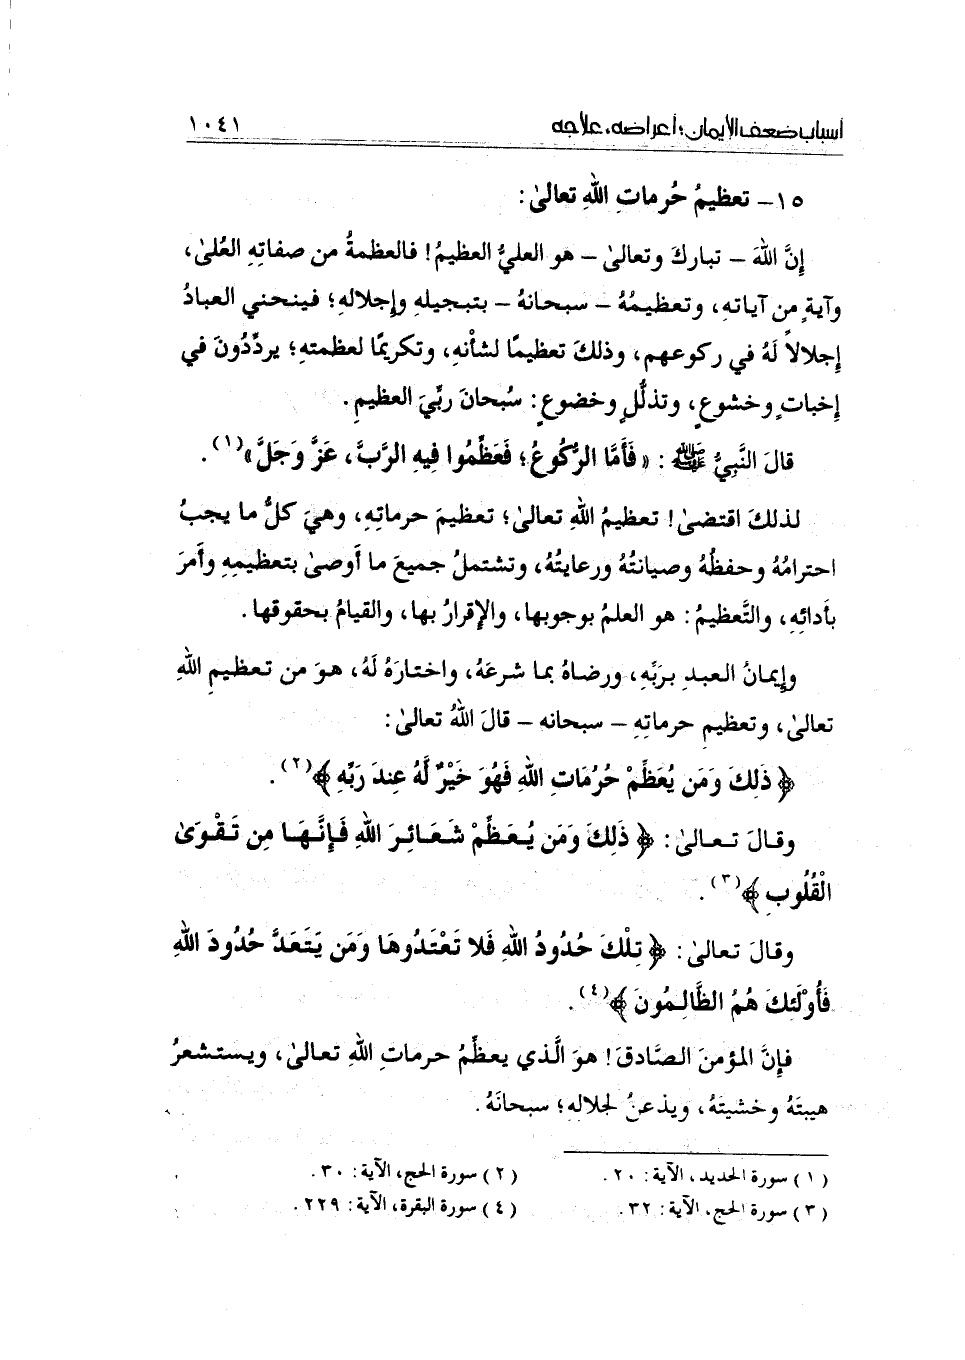 أسباب ضعف الإيمان؛ أعراضه، علاجه ١٠٤١
١٥ - تعظيمُ حُرماتِ اللهِ تعالىٰ:
إنَّ اللهَ - تباركَ وتعالىٰ - هو العليُّ العظيمُ! فالعظمةُ من صفاتِهِ العُلىٰ،
وآيةٍ من آياتهِ، وتعظيمُهُ - سبحانهُ - بتبجيلهِ وإجلالهِ؛ فينحني العبادُ
إجلالاً لَهُ في ركوعهم، وذلكَ تعظيمًا لشأنهِ، وتكريمًا لعظمتهِ؛ يردِّدُونَ في
إخباتٍ وخشوعٍ، وتذلُّلٍ وخضوعٍ: سُبحانَ ربِّيَ العظيمِ.
قالَ النَّبيُّ ﷺ: «فَأَمَّا الرُّكُوعُ؛ فَعَظِّمُوا فيهِ الرَّبَّ، عَزَّ وَجَلَّ»(١).
لذلكَ اقتضىٰ! تعظيمُ اللهِ تعالىٰ؛ تعظيمَ حرماتِهِ، وهيَ كلُّ ما يجبُ
احترامُهُ وحفظُهُ وصيانتُهُ ورعايتُهُ، وتشتملُ جميعَ ما أوصىٰ بتعظيمِهِ وأمرَ
بأدائِهِ، والتَّعظيمُ: هو العلمُ بوجوبها، والإقرارُ بها، والقيامُ بحقوقها.
وإيمانُ العبدِ بربِّهِ، ورضاهُ بما شرعَهُ، واختارَهُ لَهُ، هوَ من تعظيمِ اللهِ
تعالىٰ، وتعظيمِ حرماتِهِ - سبحانه - قالَ اللهُ تعالىٰ:
﴿ذَلِكَ وَمَن يُعَظِّمْ حُرُمَاتِ اللهِ فَهُوَ خَيْرٌ لَّهُ عِندَ رَبِّهِ﴾(٢).
وقالَ تعالىٰ: ﴿ذَلِكَ وَمَن يُعَظِّمْ شَعَائِرَ اللهِ فَإِنَّهَا مِن تَقْوَىٰ
الْقُلُوبِ﴾(٣).
وقالَ تعالىٰ: ﴿تِلْكَ حُدُودُ اللهِ فَلا تَعْتَدُوهَا وَمَن يَتَعَدَّ حُدُودَ اللهِ
فَأُوْلَئِكَ هُمُ الظَّالِمُونَ﴾(٤).
فإنَّ المؤمنَ الصَّادقَ! هوَ الَّذي يعظِّمُ حرماتِ اللهِ تعالىٰ، ويستشعرُ
هيبتَهُ وخشيتَهُ، ويذعنُ لجلالهِ؛ سبحانَهُ.
(١) سورة الحديد، الآية: ٢٠. (٢) سورة الحج، الآية: ٣٠.
(٣) سورة الحج، الآية: ٣٢. (٤) سورة البقرة، الآية: ٢٢٩.